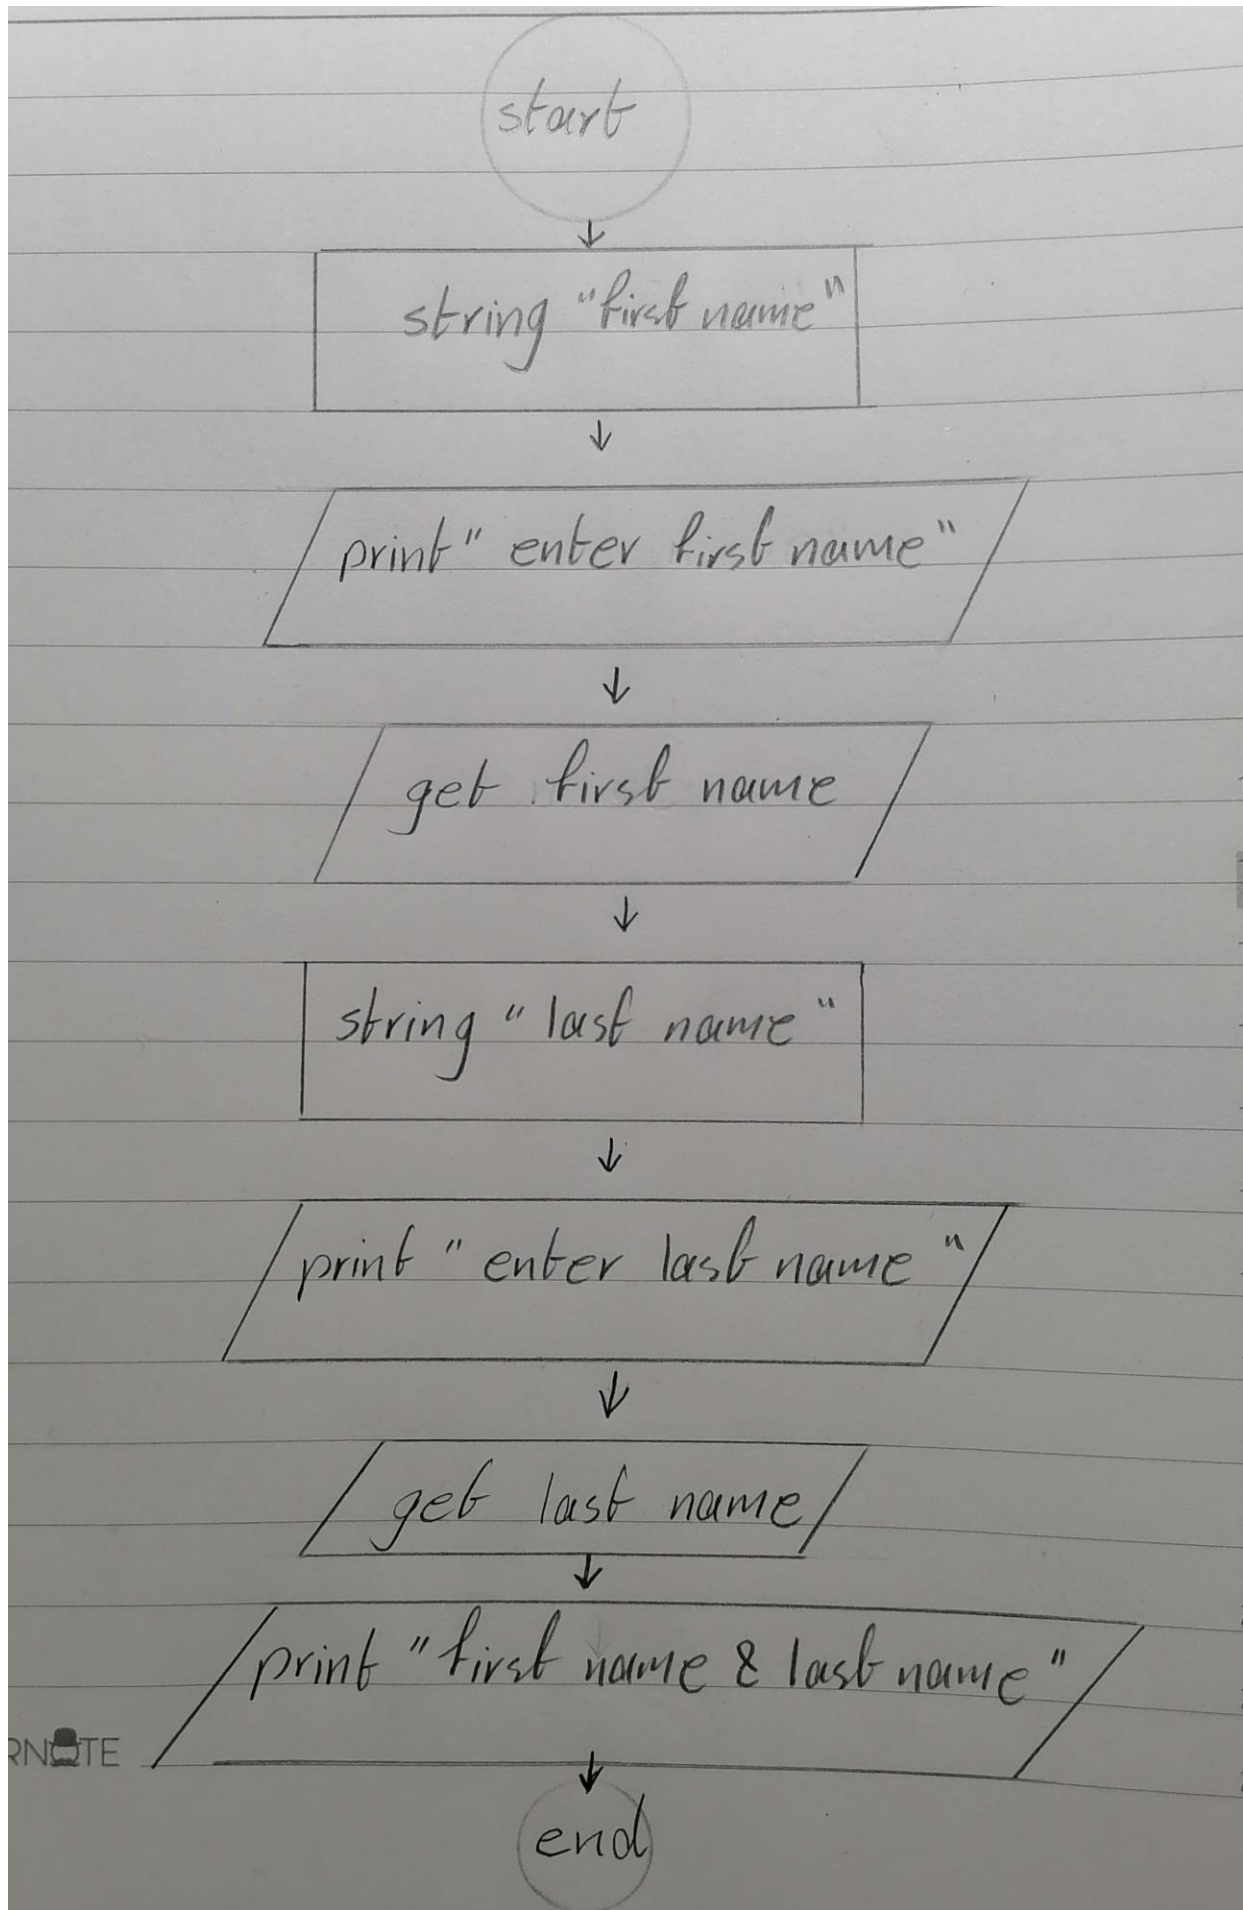 start
string "first name"
print" enter first name"
get first name
string "last name"
print "enter last name"
get last name
print "first name & last name"
RNOTE
end